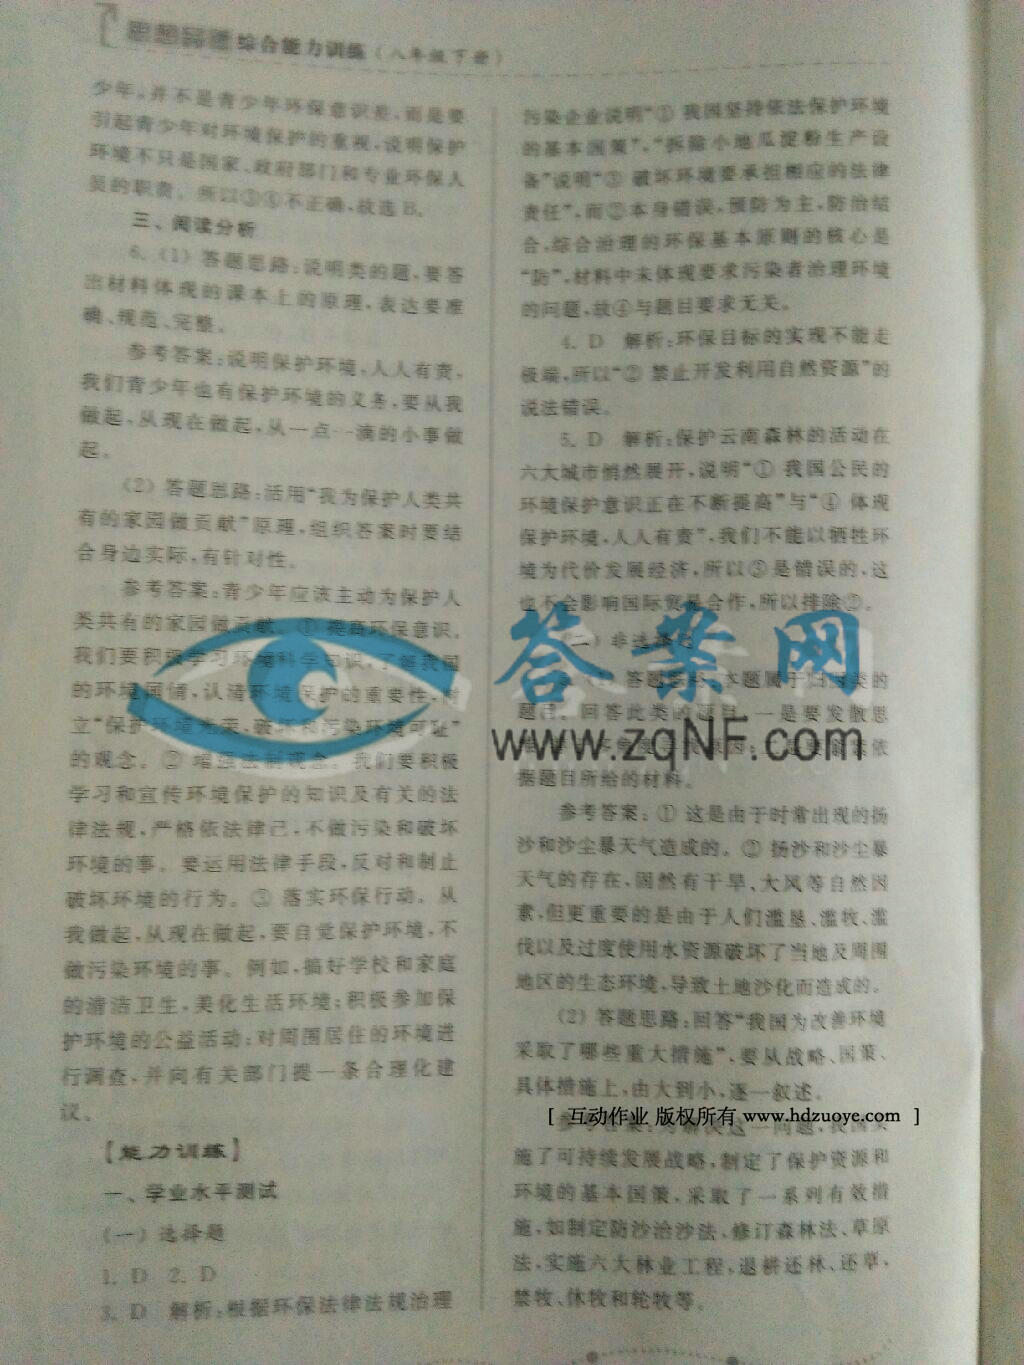 思想品德综合能力训练(八年级下册)
少年。并不是青少年环保意识差,而是要
引起青少年对环境保护的重视,说明保护
环境不只是国家、政府部门和专业环保人
员的职责。所以③④不正确,故选B。
三、阅读分析
6.(1)答题思路:说明类的题,要答
出材料体现的课本上的原理,表达要准
确、规范、完整。
参考答案:说明保护环境,人人有责,
我们青少年也有保护环境的义务,要从我
做起,从现在做起,从一点一滴的小事做
起。
(2)答题思路:活用“我为保护人类共
有的家园做贡献”原理,组织答案时要结
合身边实际,有针对性。
参考答案:青少年应该主动为保护人
类共有的家园做贡献。①提高环保意识。
我们要积极学习环境科学知识,了解我国
的环境国情,认清环境保护的重要性,树
立“保护环境光荣,破坏和污染环境可耻”
的观念。②增强法制观念。我们要积极
学习和宣传环境保护的知识及有关的法
律法规,严格依法律己,不做污染和破坏
环境的事。要运用法律手段,反对和制止
破坏环境的行为。③落实环保行动。从
我做起,从现在做起,要自觉保护环境,不
做污染环境的事。例如,搞好学校和家庭
的清洁卫生,美化生活环境;积极参加保
护环境的公益活动;对周围居住的环境进
行调查,并向有关部门提一条合理化建
议。
【能力训练】
一、学业水平测试
(一)选择题
1. D 2. D
3. D 解析:根据环保法律法规治理
污染企业说明“①我国坚持依法保护环境
的基本国策”,“拆除小地瓜淀粉生产设
备”说明“③破坏环境要承担相应的法律
责任”,而②本身错误,预防为主,防治结
合,综合治理的环保基本原则的核心是
“防”,材料中未体现要求污染者治理环境
的问题,故④与题目要求无关。
4. D 解析:环保目标的实现不能走
极端,所以“②禁止开发利用自然资源”的
说法错误。
5. D 解析:保护云南森林的活动在
六大城市悄然展开,说明“①我国公民的
环境保护意识正在不断提高”与“④体现
保护环境,人人有责”,我们不能以牺牲环
境为代价发展经济,所以③是错误的,这
也不会影响国际贸易合作,所以排除②。
(二)非选择题
答题思路:本题属于归因类的
题目。回答此类的题目,一是要发散思
依
据题目所给的材料。
参考答案:①这是由于时常出现的扬
沙和沙尘暴天气造成的。②扬沙和沙尘暴
天气的存在,固然有干旱、大风等自然因
素,但更重要的是由于人们滥垦、滥牧、滥
伐以及过度使用水资源破坏了当地及周围
地区的生态环境,导致土地沙化而造成的。
(2)答题思路:回答“我国为改善环境
采取了哪些重大措施”,要从战略、国策、
具体措施上,由大到小,逐一叙述。
参考答案:为解决这一问题,我国实
施了可持续发展战略,制定了保护资源和
环境的基本国策,采取了一系列有效措
施,如制定防沙治沙法,修订森林法、草原
法,实施六大林业工程,退耕还林、还草,
禁牧、休牧和轮牧等。
答案网
www.zqNF.com
[ 互动作业 版权所有 www.hdzuoye.com ]